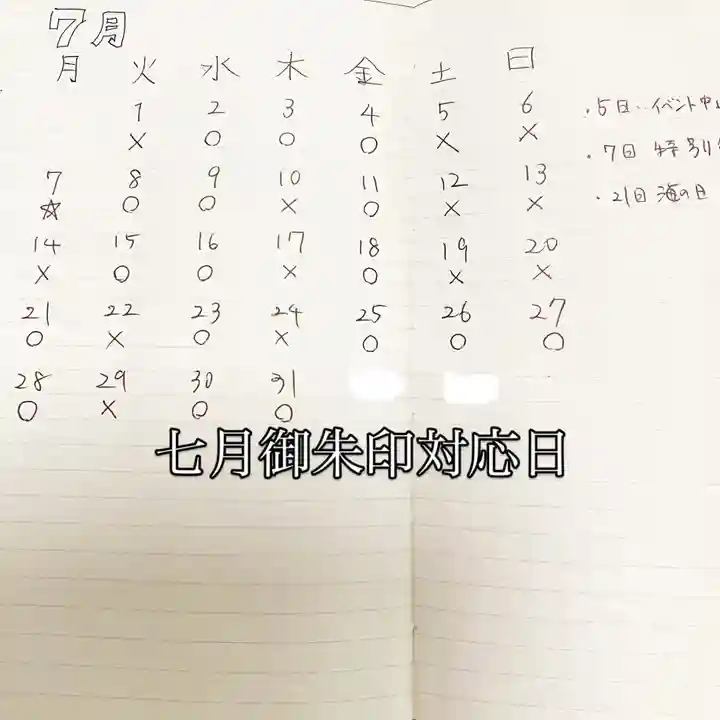 7月
月 火 水 木 金 土 日
1 2 3 4 5 6
× ○ ○ ○ × ×
7 8 9 10 11 12 13
☆ ○ ○ × ○ × ×
14 15 16 17 18 19 20
× ○ ○ × ○ × ×
21 22 23 24 25 26 27
○ × ○ × ○ ○ ○
28 29 30 31
○ × ○ ○
・5日‥イベント中
・7日 特別
・21日 海の日
七月御朱印対応日